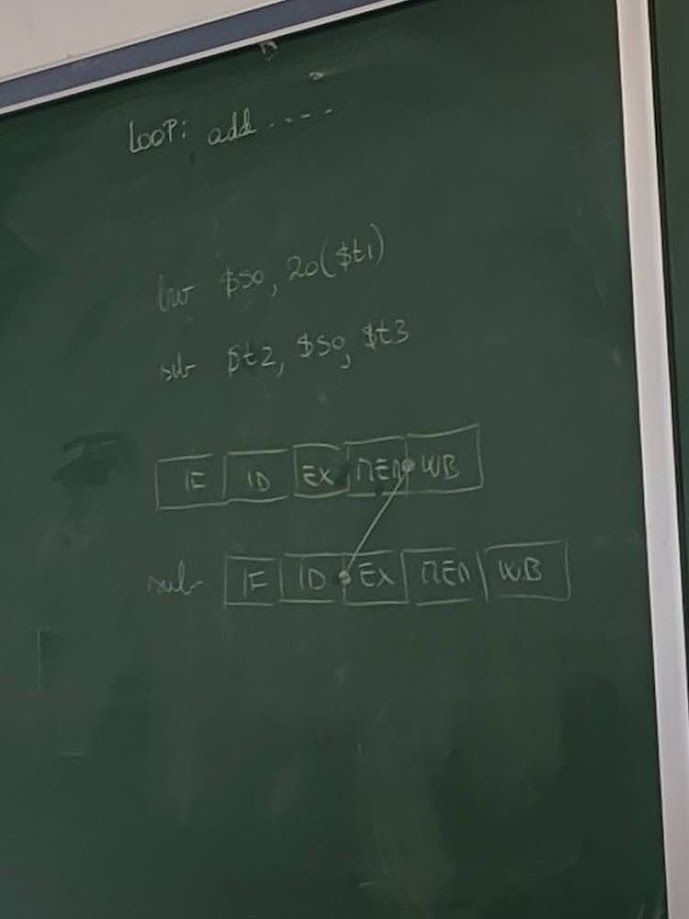 LOOP: add ....
lw $s0, 20($t1)
sub $t2, $s0, $t3
IF ID EX MEM WB
sub IF ID EX MEM WB